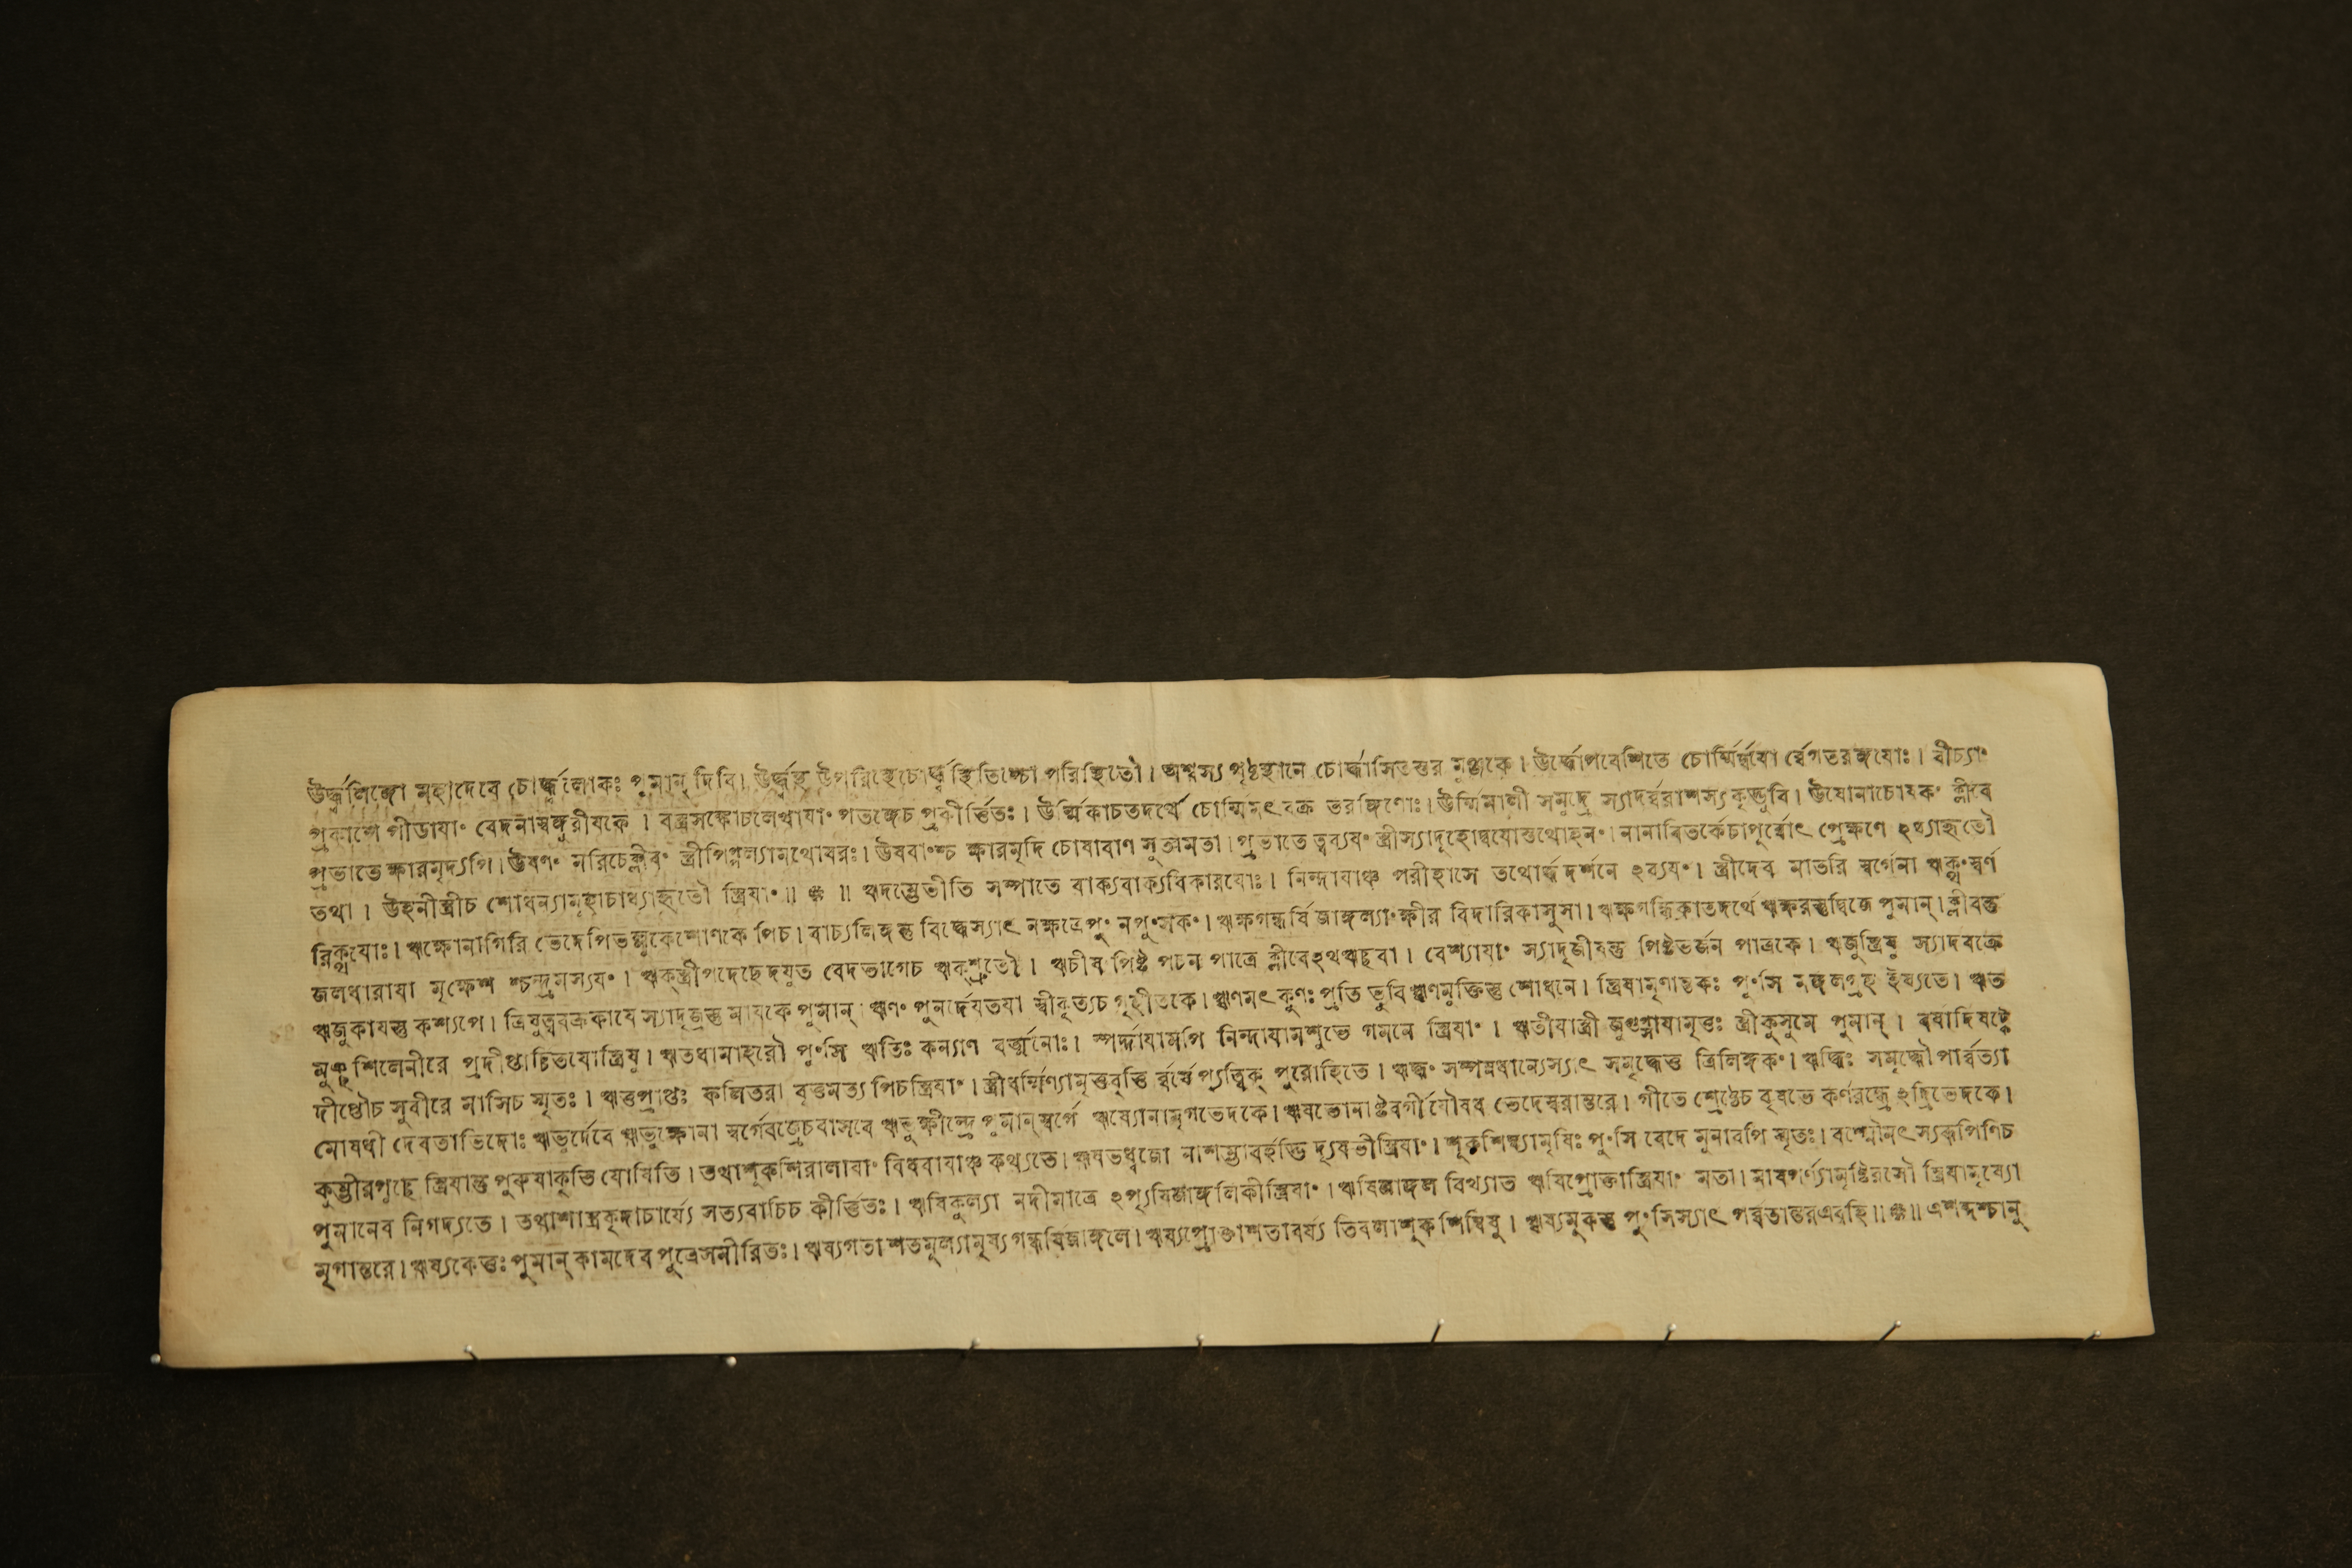 ঊর্দ্ধ্বলিঙ্গো মহাদেবে চোর্দ্ধ্বলোকঃ পুমান্ দিবি। ঊর্দ্ধ্বস্থ উপরিস্থেচোর্দ্ধ্বস্থিতিশ্চো পরিস্থিতৌ। অশ্বস্য পৃষ্ঠস্থানে চোর্দ্ধ্বাসিতত্তর মুঞ্জকে। ঊর্দ্ধ্বোপবেশিতে চোর্ম্মির্দ্বযো র্ব্বেগতরঙ্গযোঃ। বীচ্যাং
প্রকাশে পীডাযাং বেদনাস্বঙ্গুরীযকে। বস্ত্রসঙ্কোচলেখাযাং পতঙ্গেচ প্রকীর্ত্তিতঃ। ঊর্ম্মিকাচতদর্থে চোর্ম্মিমৎ বক্র তরঙ্গিণোঃ। ঊর্ম্মিমালী সমুদ্রে স্যাদর্ব্বরাশস্যকৃদ্ভুবি। ঊষোনাচোষকং ক্লীবে
প্রভাতে ক্ষারমৃদ্যপি। ঊষণং মরিচেক্লীবং স্ত্রীপিপ্পল্যামথোষরঃ। ঊষবাংশ্চ ক্ষারমৃদি চোষাবাণ সুতামতা। প্রভাতে ত্বব্যযং স্ত্রীস্যাদূহোদ্বযোস্তথোহনং। নানাবিতর্কেচাপূর্ব্বোৎ প্রেক্ষণে ঽধ্যাহৃতৌ
তথা। ঊহনীস্ত্রীচ শোধন্যামূহাচাধ্যাহৃতৌ স্ত্রিযাং॥ ॥ ঋদম্ভেতীতি সম্পাতে বাক্যবাক্যবিকারযোঃ। নিন্দাযাঞ্চ পরীহাসে তথোর্দ্ধ্ব দর্শনে ঽব্যযং। স্ত্রীদেব মাতরি স্বর্গেনা ঋক্থং স্বর্ণ
রিক্থযোঃ। ঋক্ষোনাগিরি ভেদেপিভল্লুকেশোণকে পিচ। বাচ্যলিঙ্গন্তু বিদ্ধেস্যাৎ নক্ষত্রেপুং নপুংসকং। ঋক্ষগন্ধর্ষি জাঙ্গল্যাংক্ষীর বিদারিকাসুসা। ঋক্ষগন্ধিকাতদর্থে ঋক্ষরস্তুদ্বিজে পুমান্। ক্লীবন্তু
জলধারাযা মৃক্ষেশ শ্চন্দ্রমস্যযং। ঋক্স্ত্রীপদেছেদযুত বেদভাগেচ ঋক্শ্রুতৌ। ঋচীষ পিষ্ট পচন পাত্রে ক্লীবেঽথঋছবা। বেশ্যাযাং স্যাদৃজীষন্তু পিষ্টভর্জন পাত্রকে। ঋজুস্ত্রিষু স্যাদবক্রে
ঋজুকাযস্তু কশ্যপে। ত্রিষুত্ববক্রকাযে স্যাদৃজ্রস্তু মাযকে পুমান্। ঋণং পুনর্দেযতযা স্বীকৃত্যচ গৃহীতকে। ঋণমৎ কুণঃ প্রতি ভুবিঋণমুক্তিস্তু শোধনে। স্ত্রিযামৃণান্তকঃ পুংসি মঙ্গলগ্রহ ইষ্যতে। ঋত
মুঞ্ছশিলেনীরে প্রদীপ্তার্চ্চিতযোস্ত্রিষু। ঋতধামাহরৌ পুংসি ঋতিঃ কল্যাণ বর্ত্মনোঃ। স্পর্দ্ধাযামপি নিন্দাযামশুভে গমনে স্ত্রিযাং। ঋতীযাস্ত্রী জুগুপ্সাযামৃতুঃ স্ত্রীকুসুমে পুমান্। বর্ষাদিষট্কে
দীপ্তৌচ সুবীরে মাসিচ স্মৃতঃ। ঋতুপ্রাপ্তঃ ফলিতরা বৃত্তমত্য পিচস্ত্রিযাং। স্ত্রীধর্ম্মিণ্যামৃতুবৃত্তি র্ব্বর্ষে প্যৃত্বিক্ পুরোহিতে। ঋদ্ধং সম্পন্নধান্যেস্যাৎ সমৃদ্ধেতু ত্রিলিঙ্গকং। ঋদ্ধিঃ সমৃদ্ধৌ পার্ব্বত্যা
মোষধী দেবতাভিদোঃ ঋভুর্দেবে ঋভুক্ষোনা স্বর্গেবজ্রেচবাসবে ঋভুক্ষীন্দ্রে পুমান্ স্বর্গে ঋষ্যোনামৃগভেদকে। ঋষভোনাষ্টবর্গীযৌষধ ভেদেস্বরান্তরে। গীতে শ্রেষ্ঠেচ বৃষভে কর্ণরন্ধ্রে ঽদ্রিভেদকে।
কুম্ভীরপুছে স্ত্রিযান্তু পুরুষাকৃতি যোষিতি। তথাশূকশিরালাযাং বিধবাযাঞ্চ কথ্যতে। ঋষভধ্বজো নাশম্ভাবর্হতি দ্যৃষভীস্ত্রিযাং। শূকশিম্ব্যামৃষিঃ পুংসি বেদে মুনাবপি স্মৃতঃ। রশ্মৌনৎস্যকৃপিণিচ
পুমানেব নিগদ্যতে। তথাশাস্ত্রকৃদাচার্য্যে সত্যবাচিচ কীর্ত্তিতঃ। ঋষিকুল্যা নদীমাত্রে ঽপ্যৃষিজাঙ্গলিকীস্ত্রিযাং। ঋষিজাঙ্গল বিখ্যাত ঋষিপ্রোক্তাস্ত্রিযাং মতা। মাষপর্ণ্যামৃষ্টিরসৌ স্ত্রিযামৃষ্যো
মৃগান্তরে। ঋষ্যকেতুঃ পুমান্ কামদেব পুত্রেসমীরিতঃ। ঋষ্যগতা শতমূল্যামৃষ্যগন্ধর্ষিজাঙ্গলে। ঋষ্যপ্রোক্তাশতাবর্য্য তিবলাশূকশিম্বিষু। ঋষ্যমূকস্তু পুংসিস্যাৎ পর্ব্বতান্তরএবহি॥ ॥ এশব্দশ্চানু